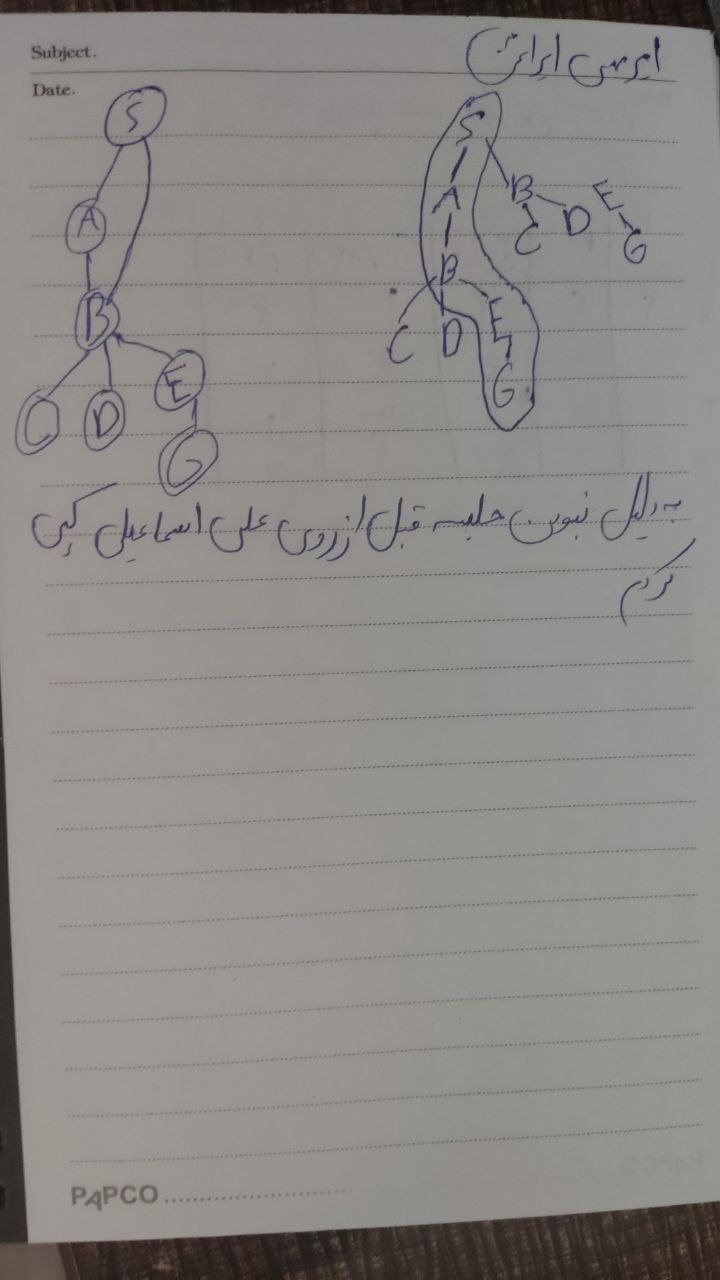 Subject.
Date.
S
A
B
C D E
G
S
A B E
B C D G
C D E
G
به دلیل نبودن جلسه قبل از روی علی اسماعیلی کپی
کردم
PAPCO